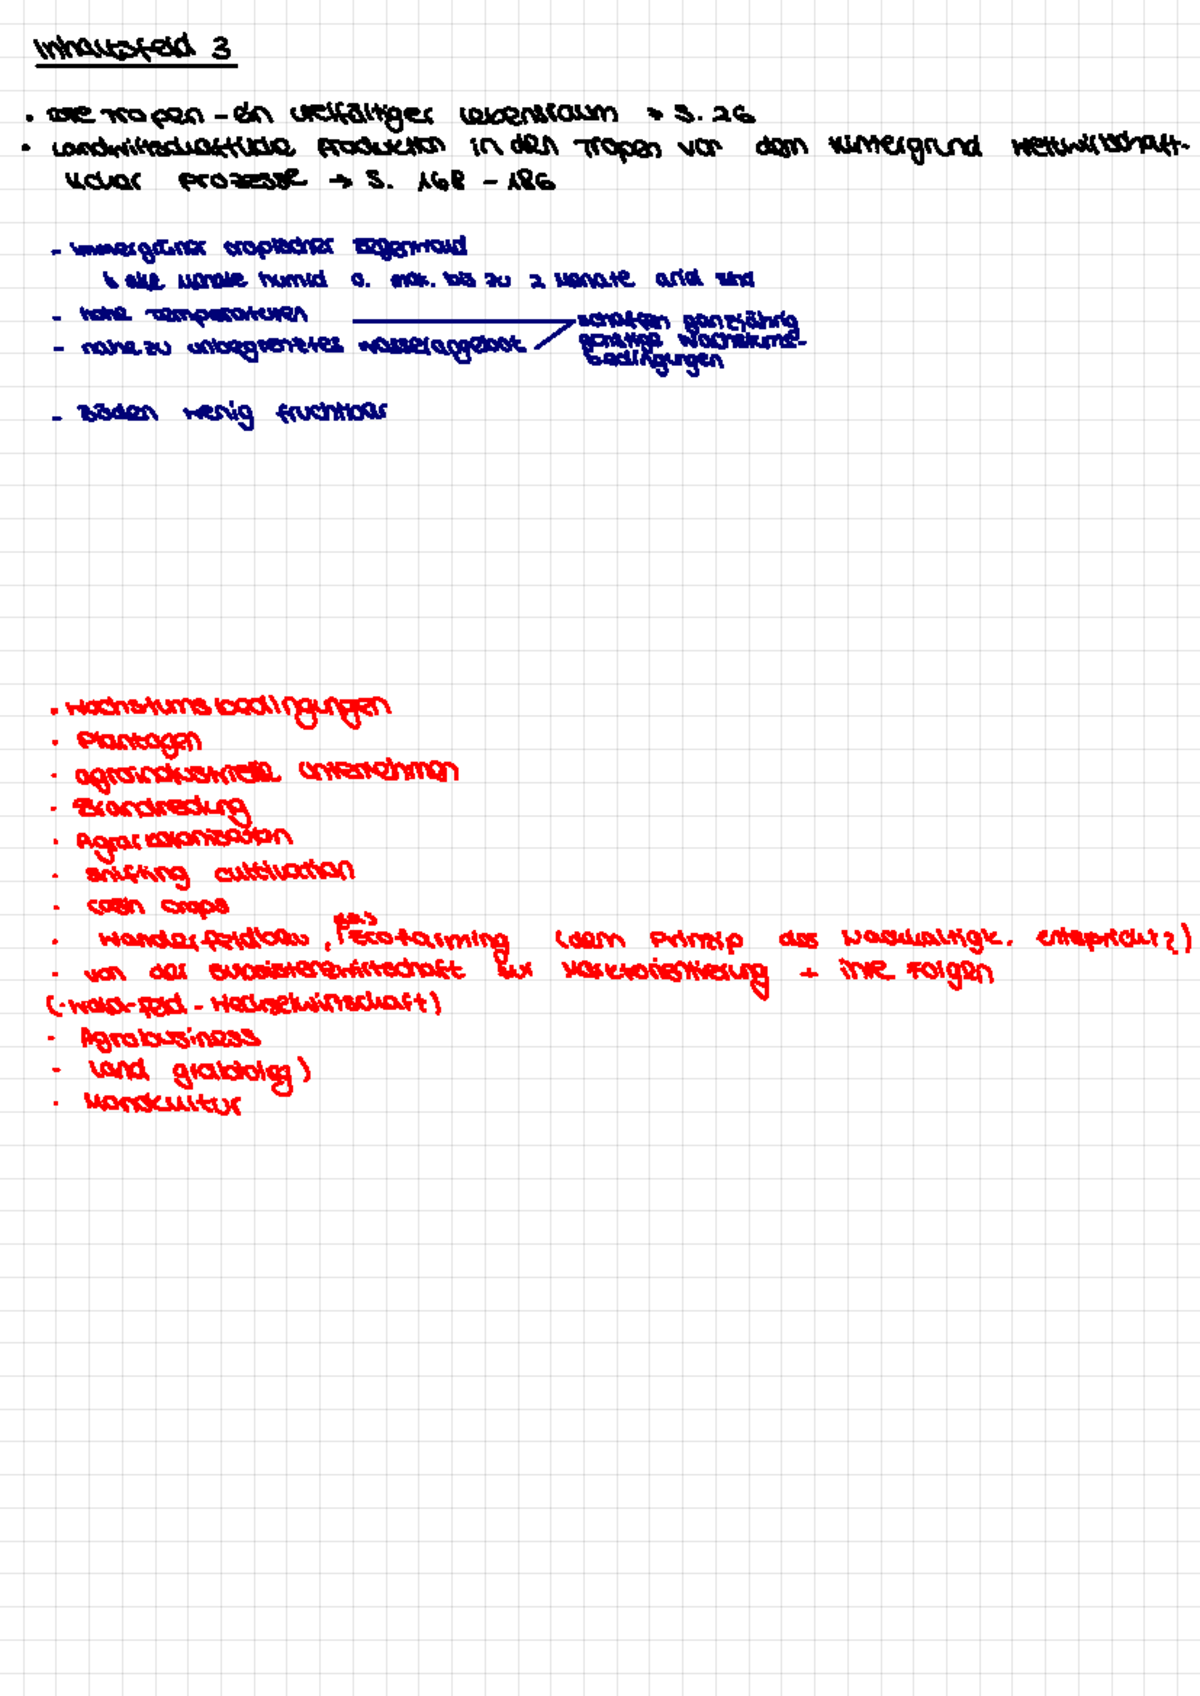 Inhaltsfeld 3
• Die Tropen - ein vielfältiger Lebensraum → S. 26
• Landwirtschaftliche Produktion in den Tropen vor dem Hintergrund weltwirtschaft-
licher Prozesse → S. 168 - 186
- Immergrüner tropischer Regenwald
↳ alle Monate humid o. max. bis zu 2 Monate arid sind
- hohe Temperaturen
- nahezu unbegrenztes Wasserangebot
schaffen ganzjährig
günstige Wachstums-
bedingungen
- Böden wenig fruchtbar
• Wachstumsbedingungen
• Plantagen
• agroindustrielle Unternehmen
• Brandrodung
• Agrarkolonisation
• shifting cultivation
• cash crops
• Wanderfeldbau, das Ecofarming (dem Prinzip der Nachhaltigk. entspricht?)
- von der Subsistenzwirtschaft zur Marktorientierung + ihre Folgen
(-Wald-Feld-Wechselwirtschaft)
- Agrobusiness
- Land grabbing)
• Monokultur